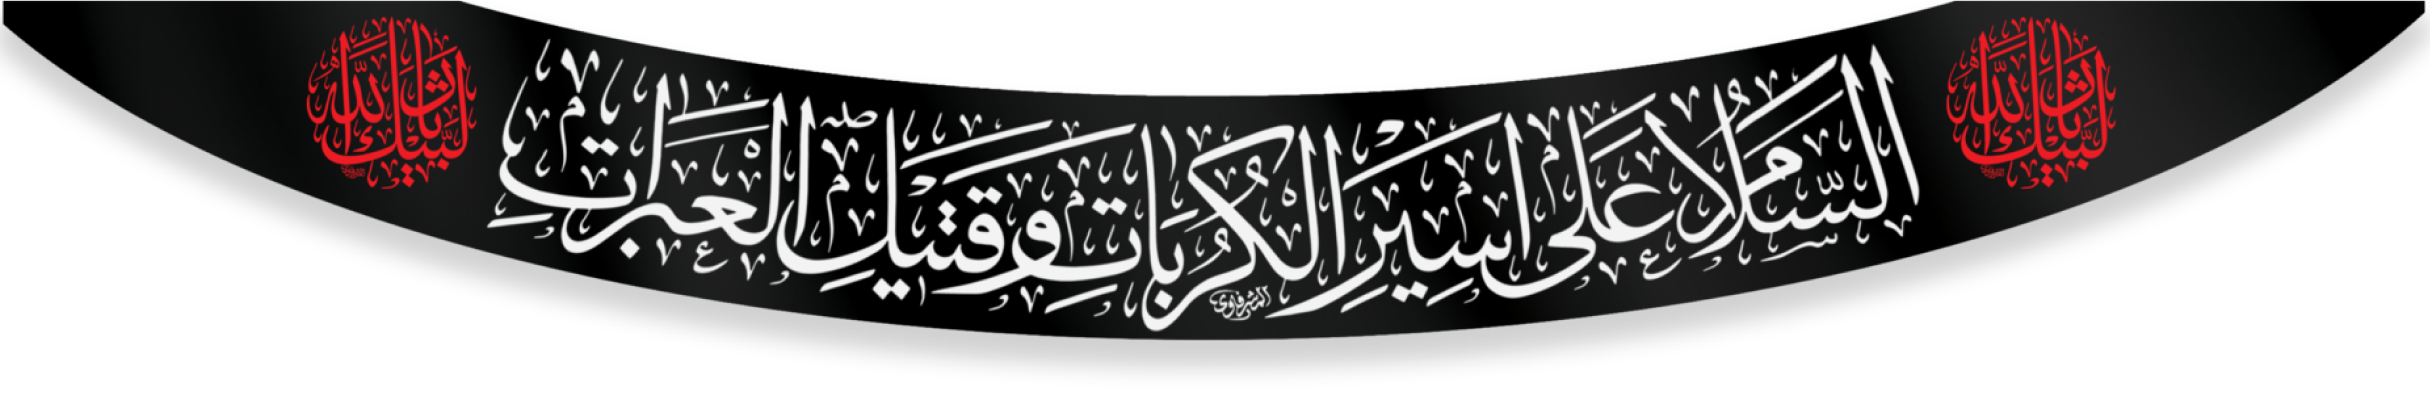 لبيك يا ثار الله
السلام على اسير الكربات وقتيل العبرات
المشرفاوي
لبيك يا ثار الله